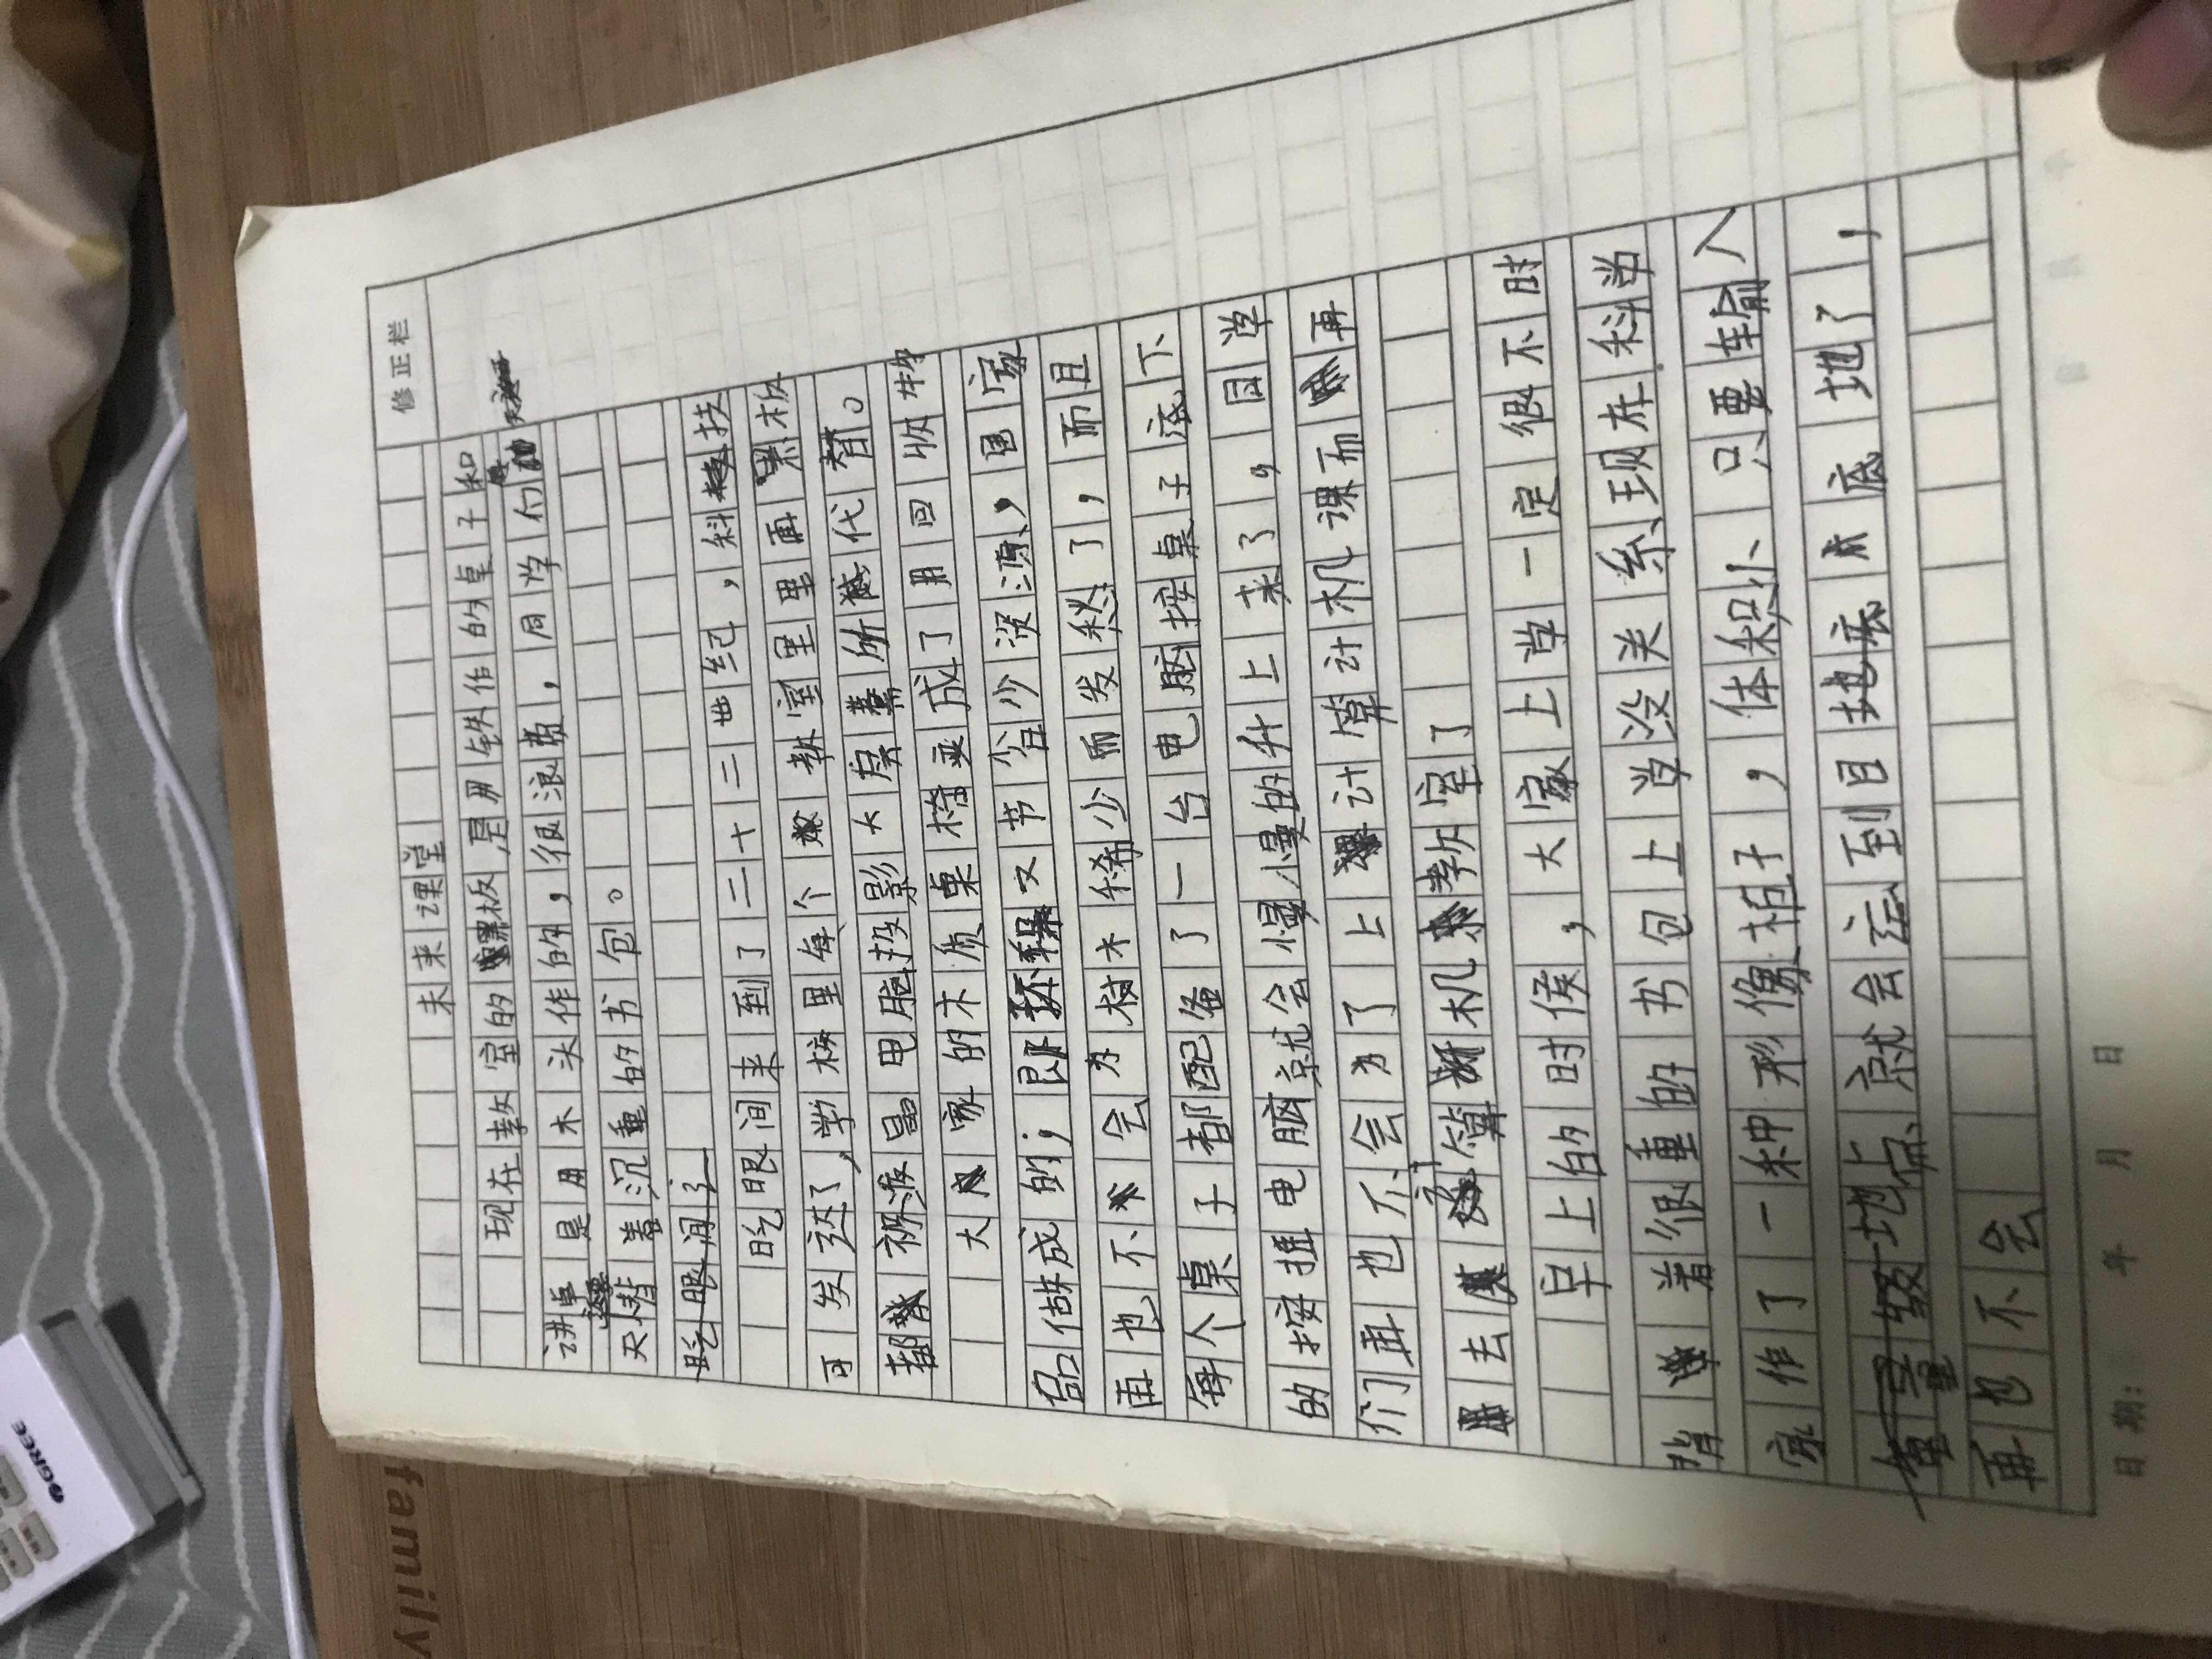 修正栏
未来课堂
现在教室的黑板是用铁作的桌子和
讲桌是用木头作的，很浪费，同学们
天背着沉重的书包。
眨眼间来到了二十二世纪，科技
可发达了，学校里每个教室里里再黑板
都被液晶电脑投影大屏幕所代替。
大家的木质桌椅变成了用回收物
品做成的；即环保又节省少资源，国家
再也不会为树木稀少而发愁了，而且
每个桌子都配备了一台电脑按桌子底下
的按掣电脑就会慢慢的升上来了。同学
们再也不会为了上计算计机课而再
去算机教室了
早上上的时侯，大家上学一定很不时
背着很重的书包上学没关系现在科学
家作了一种形像拍子，体积小、只要输入
地点就会运到目地底地了，
再也不会
日期：
年
月
日
GREE
family